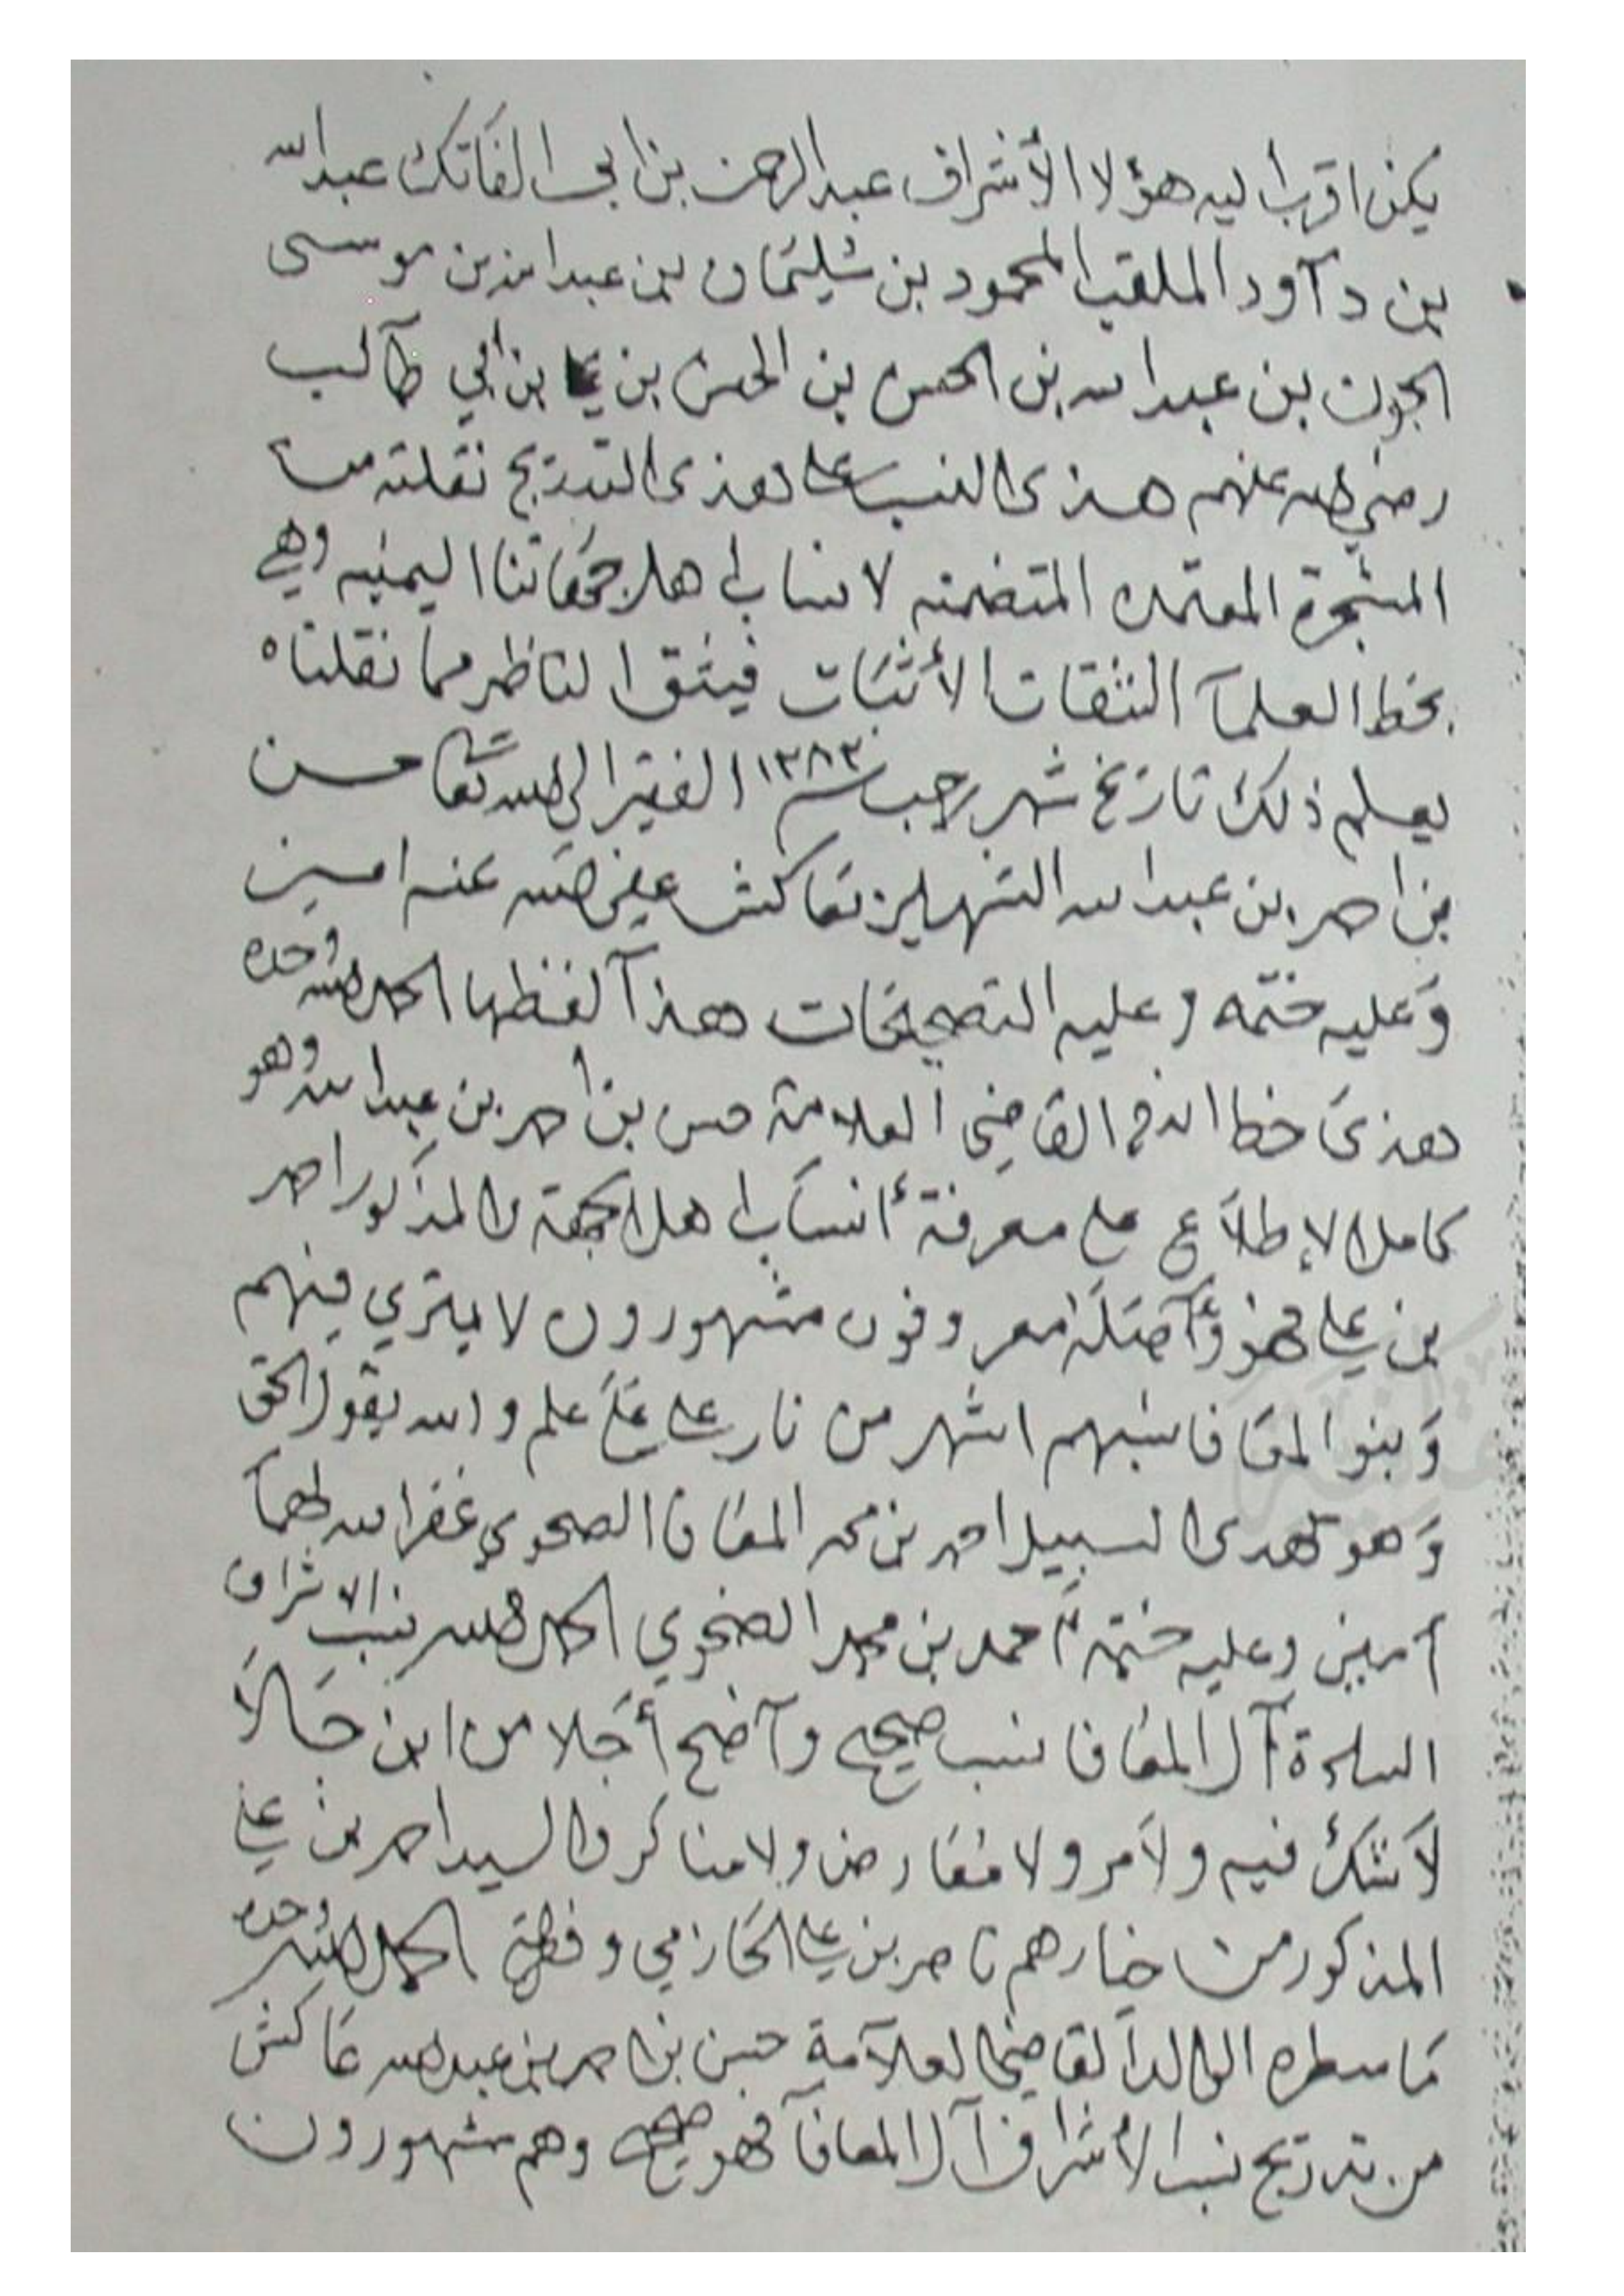 يكن اقرب اليه هؤلا الأشراف عبدالرحمن بن ابى الفاتك عبدالله
بن دآود الملقب المحمود بن سليمان بن عبدالله بن موسى
الجون بن عبدالله بن الحسن بن الحسن بن علي بن ابي طآلب
رضي الله عنهم هذى النسب على هذى التدريج نقلته من
المشجرة المعتمده المتضمنه لانساب اهل جهاتنا اليمنيه وهي
بخط العلمآ الثقات الأثبات فيثق الناظر مما نقلناه
يعلم ذلك تاريخ شهر رجب سنة ١٢٨٣ الفقير الى الله تعا حسن
بن احمد بن عبدالله الشهير بعاكش عفى الله عنه امين
وعليه ختمه وعليه التصحيحات هذآ لفظها الحمد لله وحده
هذى خط القاضي العلامة حسن بن احمد بن عبدالله وهو
كامل الإطلآع على معرفة أنسآب اهل الجهة والمذكور احمد
بن علي فهو وأصله معروفون مشهورون لا يمتري فيهم
وبنو المعافا نسبهم اشهر من نار على علم والله يقول الحق
وهو يهدى السبيل احمد بن محمد المعافا الضحوي غفر الله لهمآ
آمين وعليه ختمه أحمد بن محمد الضحوي الحمد لله نسب الاشراف
السادة آل المعافا نسب صحيح وآضح أجلا من ابن جالا
لا شك فيه ولا مر ولا معارض ولا مناكر والسيد احمد بن علي
المذكور من خيارهم ناصر بن علي الحازمي وفقه الحمد لله وحده
ما سطره الوالد القاضي العلآمة حسن بن احمد بن عبدالله عاكش
من تدريج نسب الأشراف آل المعافآ فهو صحيح وهم مشهورون